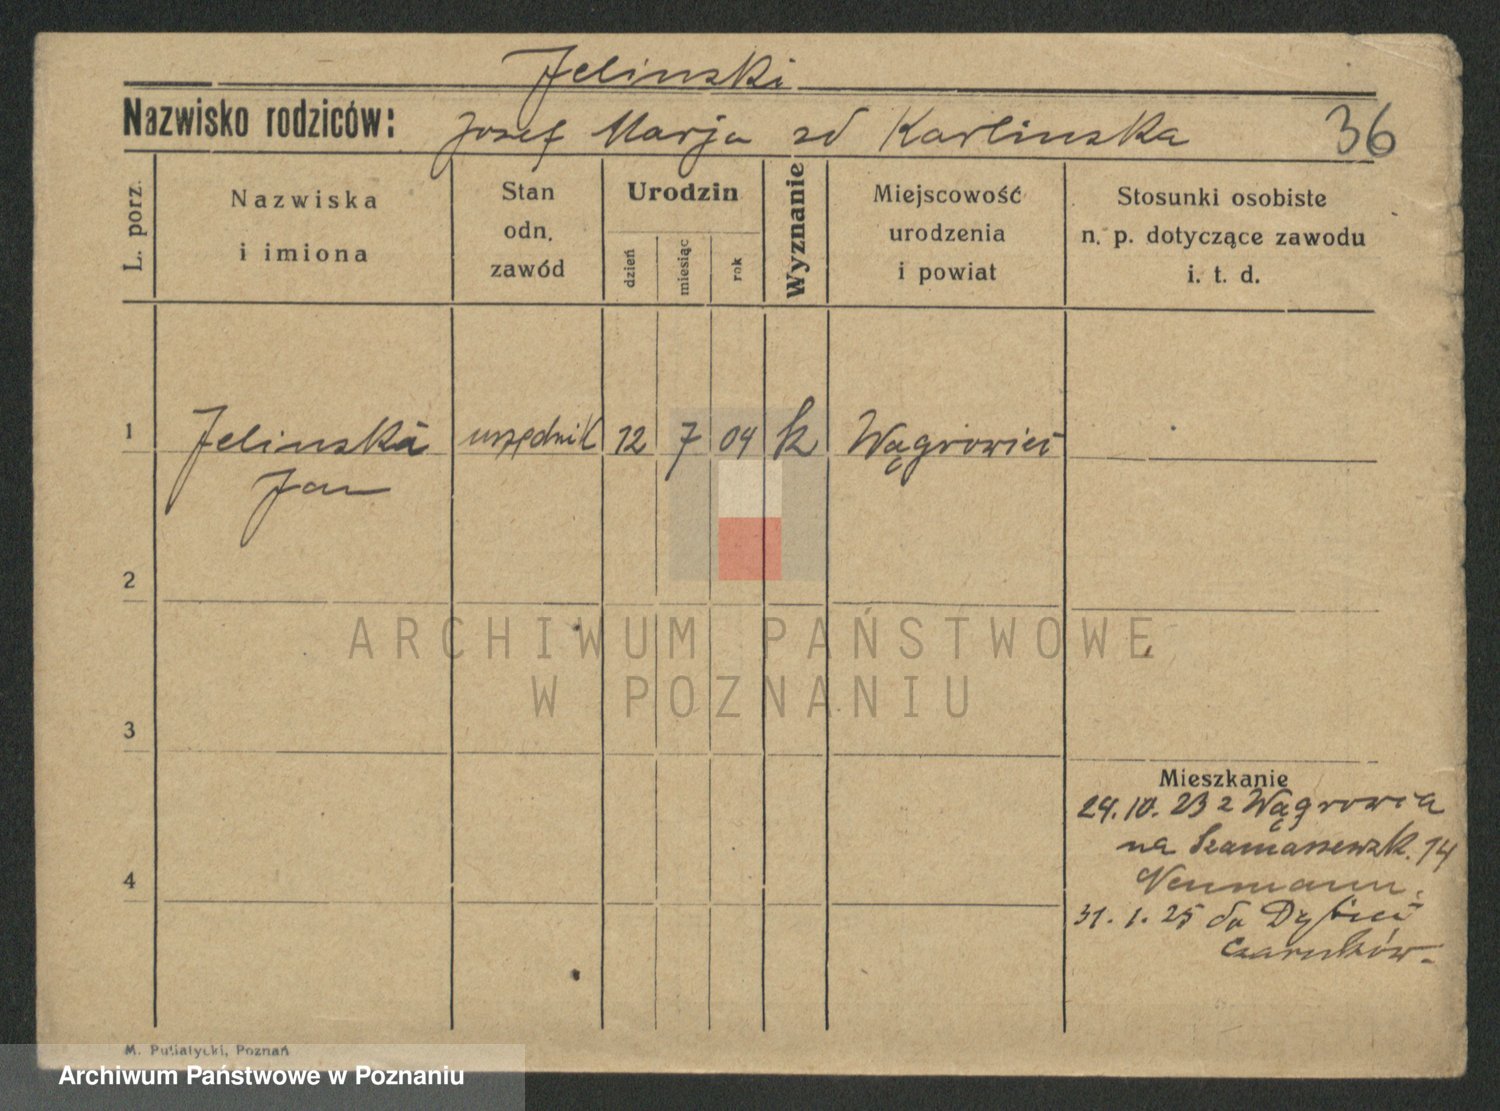 Jelinski
Nazwisko rodziców: Josef Marja zd Karlinska 36
L. porz.
Nazwiska
i imiona
Stan
odn.
zawód
Urodzin
dzień
miesiąc
rok
Wyznanie
Miejscowość
urodzenia
i powiat
Stosunki osobiste
n. p. dotyczące zawodu
i. t. d.
1 Jelinski urzędnik 12 7 04 k Wągrowiec
Jan
2
ARCHIWUM PAŃSTWOWE
W POZNANIU
3
Mieszkanie
24.10.23 z Wągrowca
na 14
Neumann.
4
31.1.25 do
Czarnków.
M. Putiatycki, Poznań
Archiwum Państwowe w Poznaniu